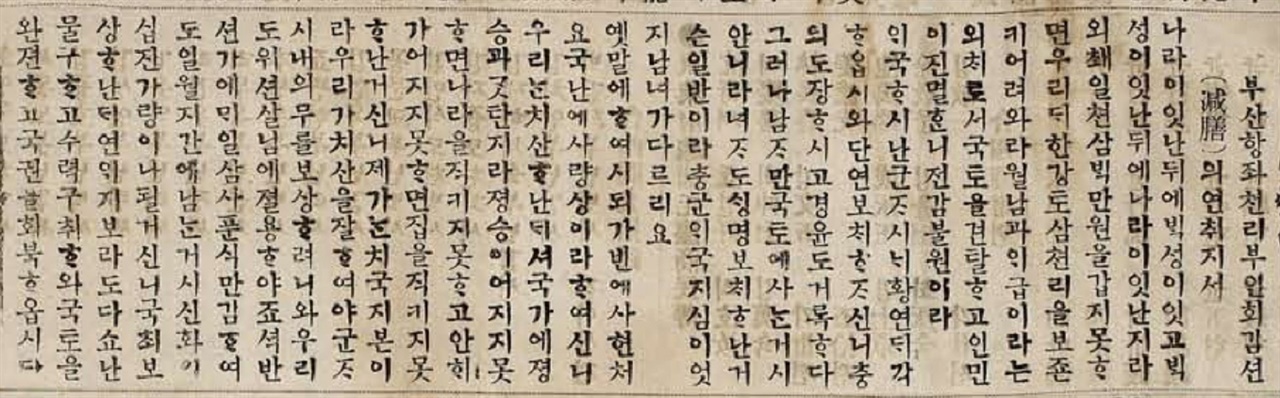 부산항좌쳔리부인회감션
(減膳)의연취지셔
나라이잇난뒤에빅셩이잇고빅
셩이잇난뒤에나라이잇난지라
외채일쳔삼빅만원을갑지못ᄒ
면우리ᄃᆡ한강토삼쳔리을보죤
키어려와라월남과이급이라는
외치로서국토을견탈ᄒ고인민
이진멸ᄒ니젼감불원이라
이국ᄒ시난군ᄌ시니황연ᄃᆡ각
ᄒ옵시와단연보처ᄒᄌ신니충
의도장ᄒ시고경윤도거록ᄒ다
그러나남ᄌ만국토에사는거시
안니라녀ᄌ도싱명보처ᄒ난거
슨일반이라충군이국지심이엇
지남녀가다르리요
옛말에ᄒ여시되가빈에사현처
요국난에사량상이라ᄒ여신니
우리ᄂᆞᆫ치산ᄒ난ᄃᆡ셔국가에졍
승과ᄀᆞᆺ탄지라졍승이어지지못
ᄒ면나라을직키지못ᄒ고안히
가어지지못ᄒ면집을직키지못
ᄒ난거신니졔가ᄂᆞᆫ치국지본이
라우리가치산을잘ᄒ여야군ᄌ
시내의무를보상ᄒ려니와우리
도위션살님에졀용ᄒ야죠셔반
션가에ᄆᆡ일삼사푼식만감ᄒ여
도일월지간에남는거시신화이
십젼가량이나될거신니국최보
상ᄒ난ᄃᆡ연의지보라도다쇼난
물구ᄒ고수력구취ᄒ와국토을
완젼ᄒ고국권을회복ᄒ옵시다